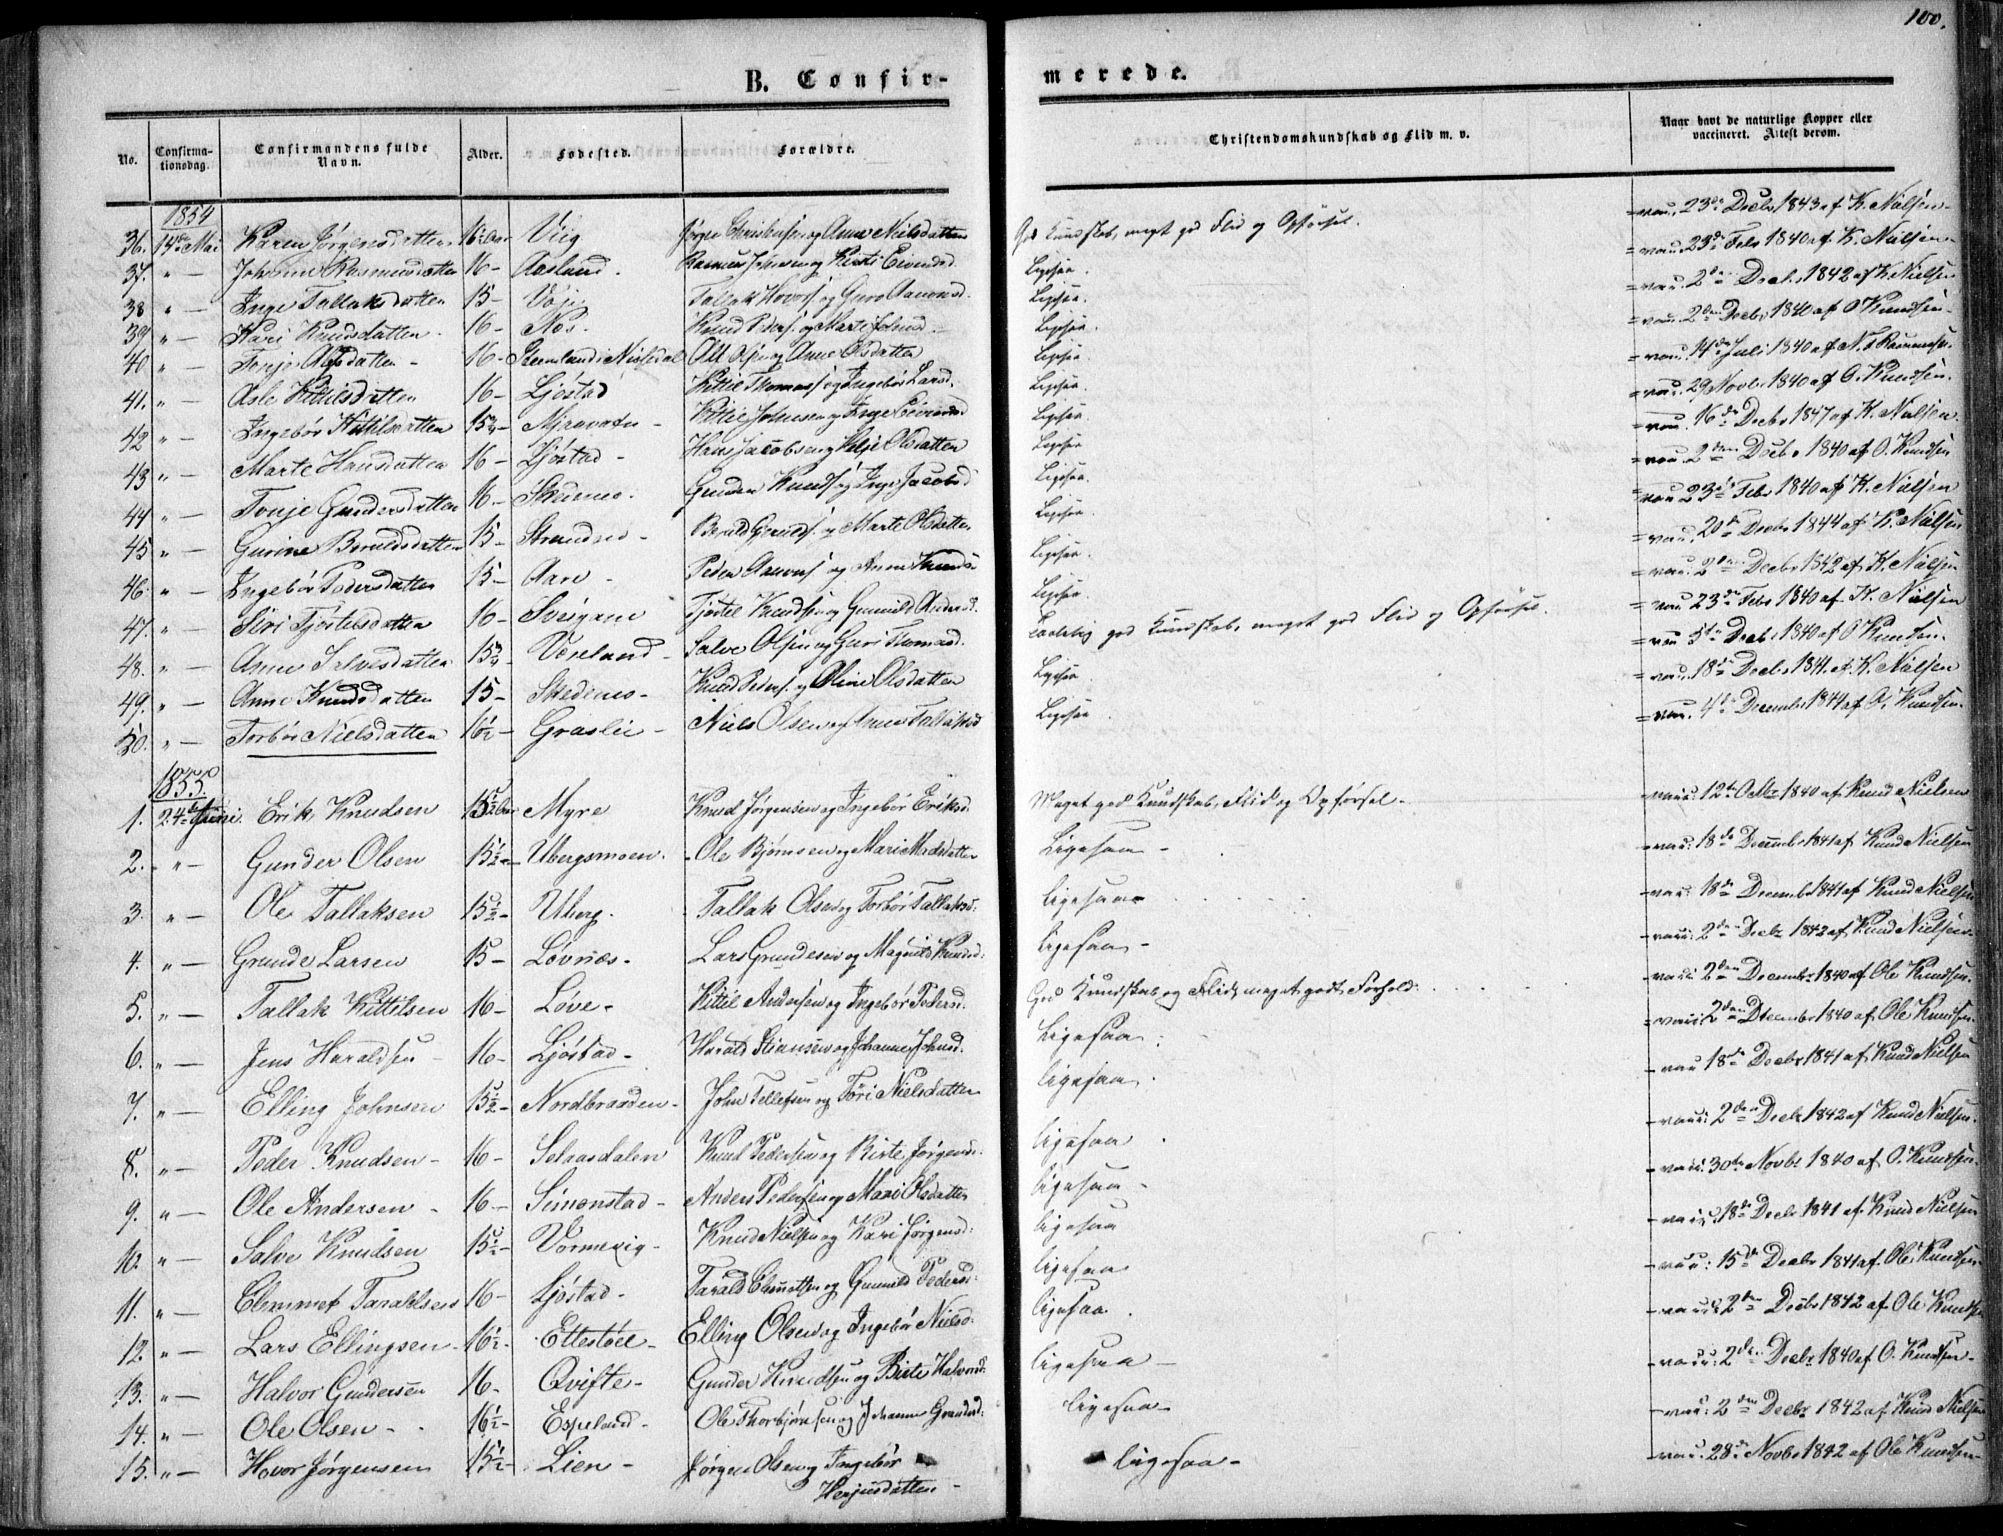 100.
B. Confirmerede.
No. Confirmationsdag. Confirmandens fulde Navn. Alder. Fødested. Forældre. Christendomskundskab og Flid m. v. Naar havt de naturlige Kopper eller vaccineret. Attest derom.
1854
36. 14de Mai Karen Jørgensdatter 16 Viig Jørgen Christensen og Anne Nielsdatter God Kundskab, meget god Flid og Opførsel. vac. 23de Decbr 1843 af K. Nielsen
37. " — Johanne Rasmusdatter 16 - Aasland. Rasmus Johnsen og Kirsti Eivindsd. Ligesaa. vac. 23de Febr 1840 af K. Nielsen
38 " — Inge Tallaksdatter 15 - Vøje Tallak Hovors. og Guro Aanonsd. Ligesaa. vac. 2den Decbr. 1842 af K. Nielsen
39 " — Kari Knudsdatter. 16 - Nes. Knud Peders. og Marte Johnsd. Ligesaa. vac. 2den Decbr 1840 af O Knudsen
40 " — Tonje Olsdatter - 16 - Nisedal Ole Olsen og Anne Olsdatter Ligesaa. vac. 14de Juli 1840 af N.
41. " — Aslo Kittilsdatter 16 - Ljøstad Kittil Thomass. og Ingebør Larsd. Ligesaa. vac. 29 Novbr 1840 af O. Knudsen.
42 " — Ingebør Kittilsdatter 15¾ - Mjaavatn - Kittil Johnsen og Inge Eivindsd Ligesaa. vac. 16de Decbr 1847 af K. Nielsen
43 " — Marte Hansdatter 16 - Ljøstad - Hans Jacobsen og Helje Olsdatter Ligesaa. vac. 2den Decbr. 1840 af O. Knudsen
44 " — Tonje Gundersdatter 16 - Skedsmo. Gunder Knuds. og Inge Jacobsd Ligesaa. vac 23de Febr 1840 af K. Nielsen
45 " — Gurine Beruldsdatter 15 - Strandne - Beruld Gjeruldf. og Marte Olsdatter Ligesaa. vac. 20de Decbr 1844 af K. Nielsen
46. " — Ingebør Pedersdatter 15 - Aare - Peder Aanons. og Anne Knuds. Ligesaa. vac. 2den Decbr 1842 af K. Nielsen
47. " — Siri Tjøstelsdatter 16 - Sveigane Tjøstel Knudsen og Gunnild Andersd. Ligesaa. vac. 23de Febr 1840 af K. Nielsen
48. " — Anne Salvesdatter 15¾ - Væreland - Salve Olsen og Guri Thomasd. Særdeles god Kundskab, meget god Flid og Opførsel. vac 5te Decbr. 1840 af O Knudsen.
49. " — Anne Knudsdatter 15 - Skedsmo - Knud Peders. og Oline Olsdatter Ligesaa. vac. 18de Decbr. 1841. af K. Nielsen
50. " — Torbør Nielsdatter 16½ - Graslie - Niels Olsen og Anne Tallaksd Ligesaa. vac. 4de December 1844 af O. Knudsen.
1855
1. 24de Juni. Erik Knudsen 15½ Aar Myre Knud Jørgensen og Ingebør Eriksd Meget god Kundskab, Flid og Opførsel. vacc: 12te Octbr 1840 af Knud Nielsen
2. " — Gunder Olsen 15½ - Ubergsmoen. Ole Bjørnsen og Mari Madsdatter Ligesaa - vac: 18de December 1841 af Knud Nielsen
3. " — Ole Tallaksen 15½ - Uberg. Tallak Olsen og Torbør Tallaksd: Ligesaa vac: 18de Decembr 1841 af Knud Nielsen
4. " — Grunde Larsen 15 - Løvnæs - Lars Grundesen og Magnild Knudsd: Ligesaa - vacc: 2den Decbr 1842 af Knud Nielsen
5. " — Tallak Kittilsen 16 - Løve - Kittil Andersen og Ingebør Pedersd. God Kundskab og Flid, meget godt Forhold. vacc: 2den Decembr 1840 af Ole Knudsen.
6. " — Jens Haraldsen 16 - Ljøstad - Harald Stiansen og Johanne Johnsd. Ligesaa. vacc: 2den December 1840 af Ole Knudsen.
7. " — Elling Johnsen 15½ - Nordbraaden - John Tellefsen og Tøri Nielsdatter Ligesaa. vac 18de Decbr 1841 af Knud Nielsen
8. " — Peder Knudsen - 16 - Selaasdalen Knud Pedersen og Birte Jørgensd: Ligesaa. vacc: 2den Decbr 1842 af Knud Nielsen.
9. " — Ole Andersen - 16 - Simonstad - Anders Pedersen og Mari Olsdatter Ligesaa - vacc. 30te Novbr 1840 af O. Knudsen.
10. " — Salve Knudsen 15½ - Vormevig - Knud Nielsen og Kari Jørgensd: Ligesaa vacc. 18de Decbr 1841 af Knud Nielsen
11. " — Clemmet Taraldsen 16 - Ljøstad - Tarald Clemetsen og Gunnild Pedersd: Ligesaa vacc: 15de Decbr 1841 af Ole Knudsen
12. " — Lars Ellingsen - 16½ - Ettestøel - Elling Olsen og Ingebør Nielsd: Ligesaa. vacc: 2den Decbr 1842 af Ole Knudsen
13. " — Halvor Gundersen 16 - Qvifte - Gunder Knudsen og Birte Halvorsd: Ligesaa - vacc: 2den Decbr 1840 af O. Knudsen -
14. " — Ole Olsen - 16½ - Espeland - Ole Thorbjørnsen og Johanne Grundesd: Ligesaa - vac: 2den Decbr 1842 af Knud Nielsen
15. " — Hovor Jørgensen 15½ - Lien - Jørgen Olsen og Ingebør Ligesaa - vacc: 28de Novbr 1842 af Ole Knudsen -
Herjusdatter -